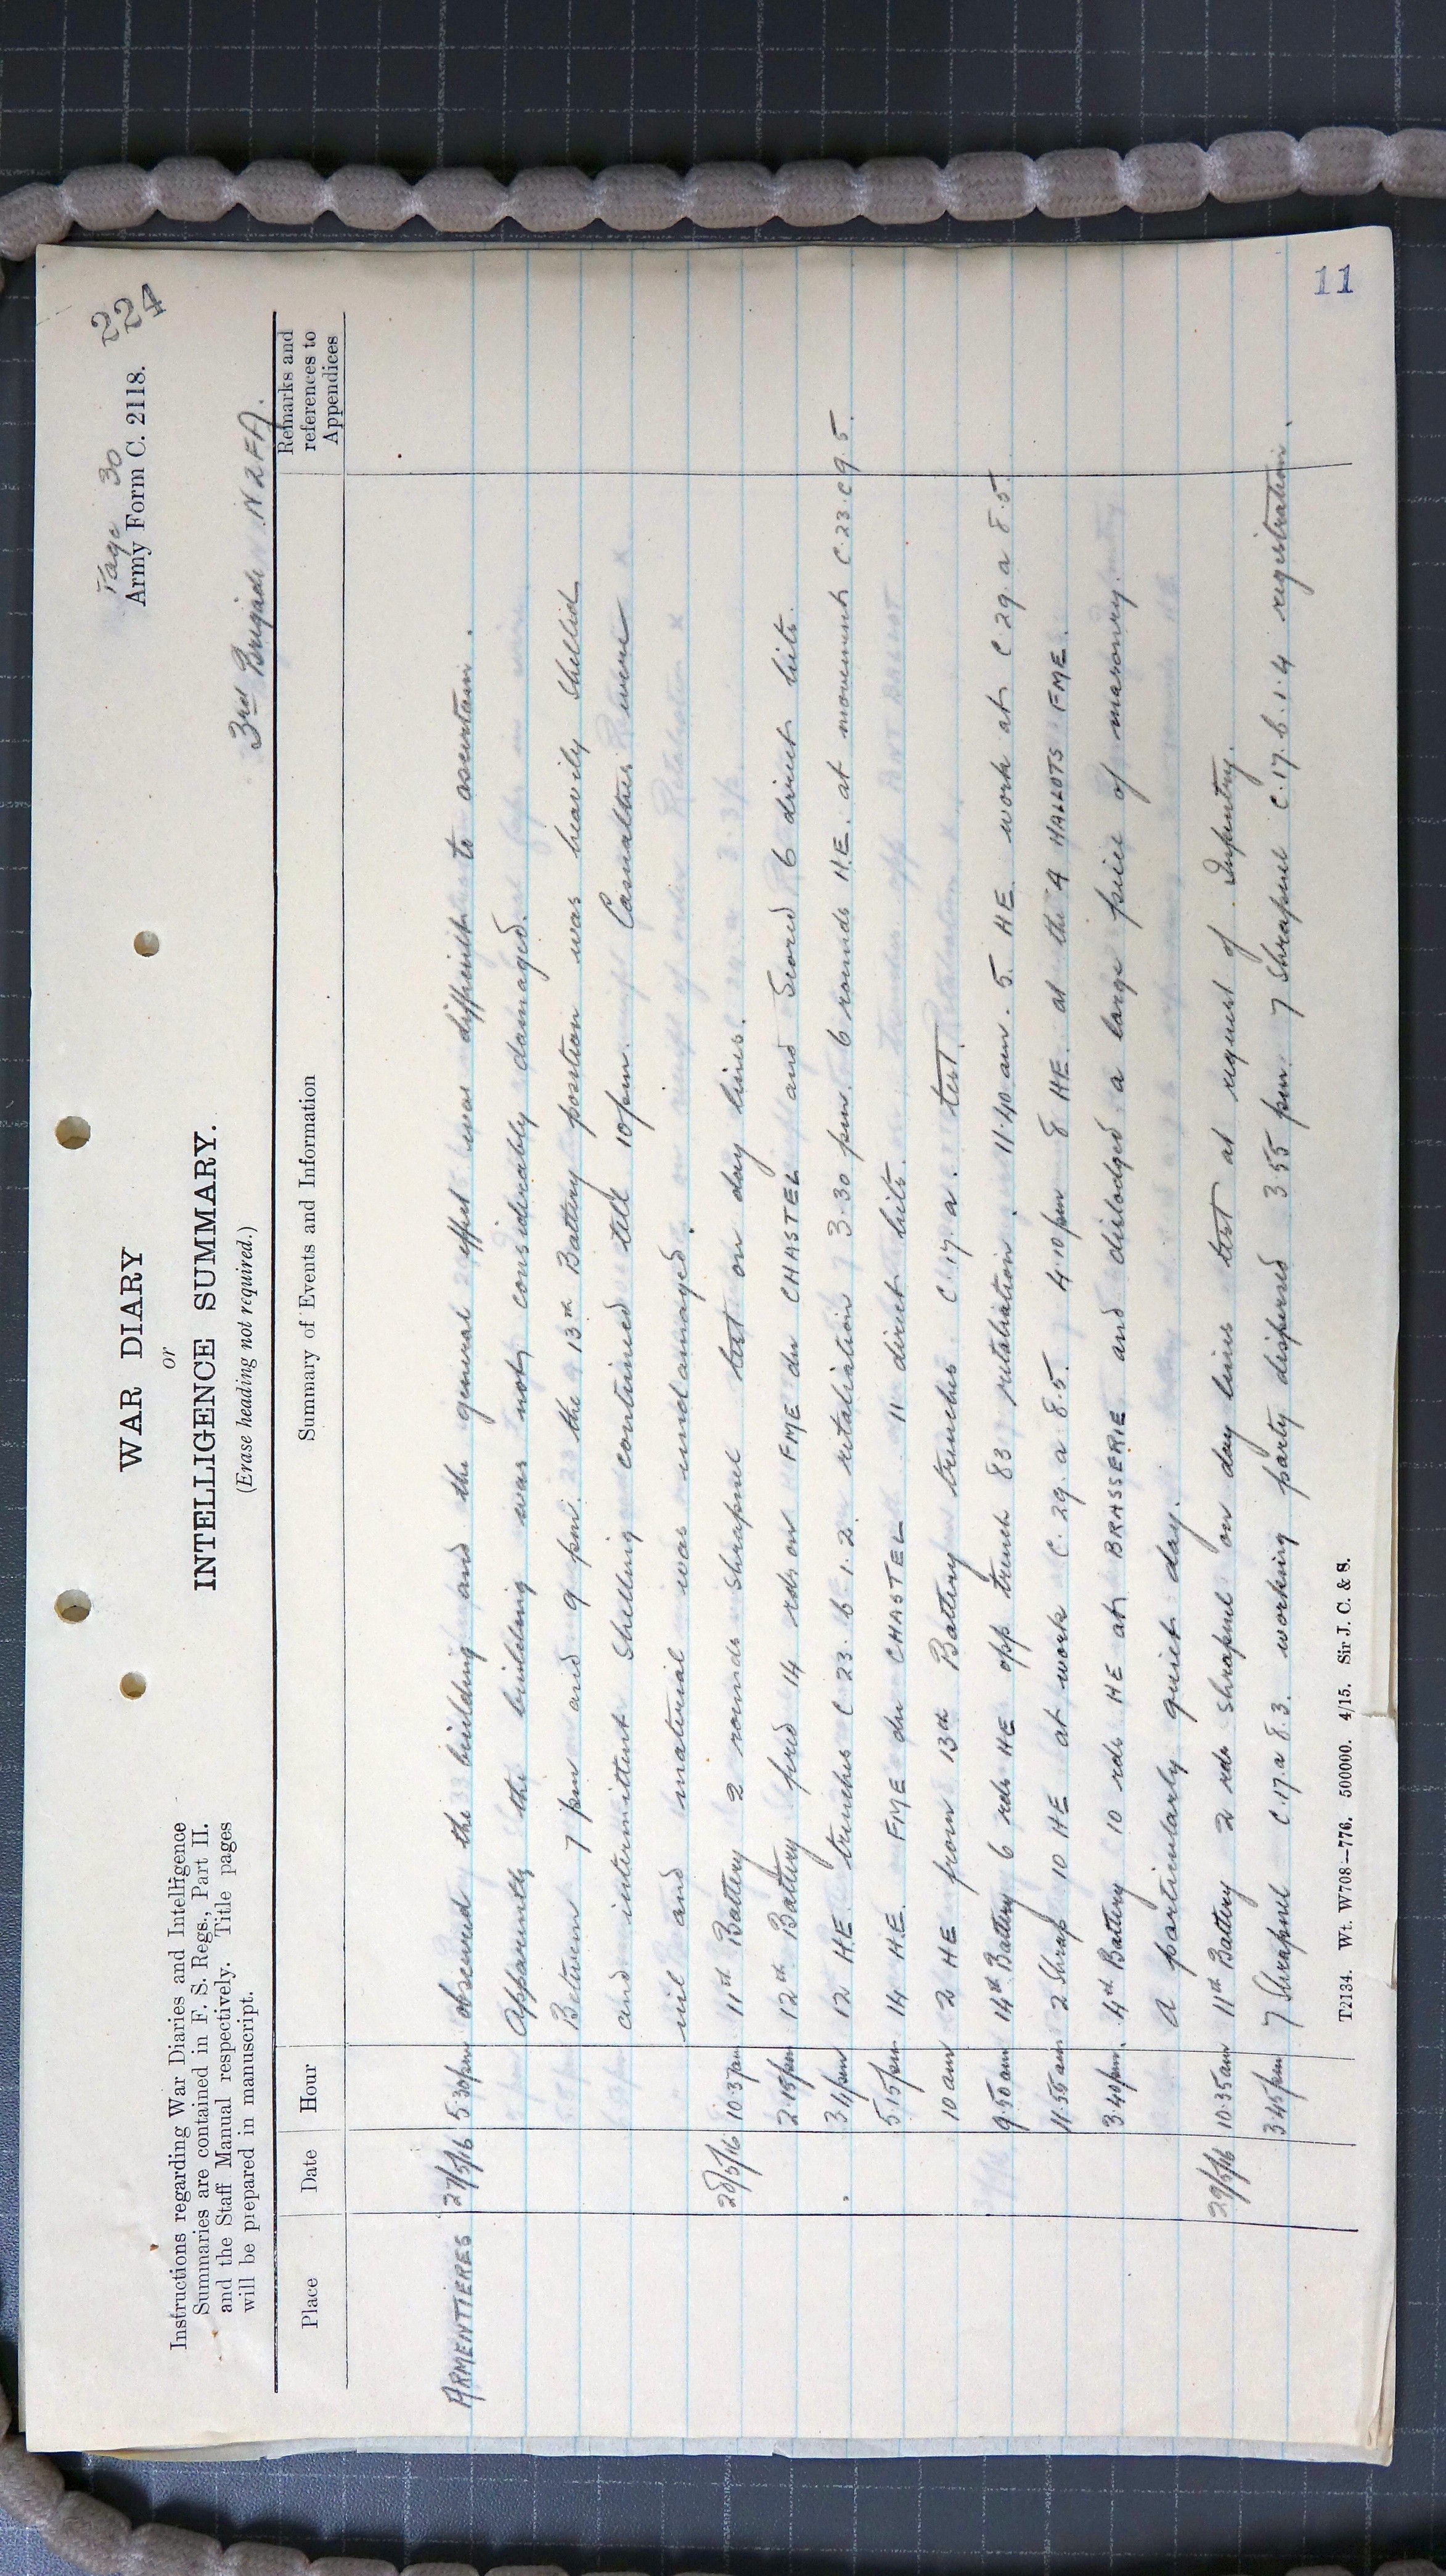 Page 30
224
Army Form C. 2118.
WAR DIARY
or
INTELLIGENCE SUMMARY.
(Erase heading not required.)
Instructions regarding War Diaries and Intelligence
Summaries are contained in F. S. Regs., Part II.
and the Staff Manual respectively. Title pages
will be prepared in manuscript.
3rd Brigade NZFA.
Place Date Hour Summary of Events and Information Remarks and references to Appendices
ARMENTIERES 27/5/16 5.30pm obscured the building and the general effect was difficult to ascertain.
Apparently the building was not considerably damaged.
Between 7 pm and 9 pm. the 13th Battery position was heavily shelled
and intermittent shelling continued till 10 pm. Casualties were
nil and material was undamaged.
28/5/16 10.37am 11th Battery 2 rounds shrapnel test on day lines.
2.15pm 12th Battery fired 14 rds on FME du CHASTEL and scored 6 direct hits.
3.4pm 12 H.E. trenches C 23. b 1.2. retaliation 3.30 pm. 6 rounds H.E. at movement C.23.c 9.5.
5.15pm 14 H.E. FME du CHASTEL 11 direct hits.
10 am 2 HE from 13th Battery trenches C.17.a. test.
9.50am 14th Battery 6 rds HE opp trench 83 retaliation. 11.40 am. 5. HE. work at C.29.a 8.5.
11.55am 2 Shrap 10 HE at work C.29.a 8.5. 4.10pm 8 HE. at the 4 HALLOTS FME.
3.40pm. 4th Battery 10 rds HE at BRASSERIE and dislodged a large piece of masonry.
A particularly quiet day.
29/5/16 10.35am 11th Battery 2 rds shrapnel on day lines test at request of Infantry.
3.45pm 7 Shrapnel C.17.a 8.3. working party dispersed 3.55 pm. 7 Shrapnel C.17.b.1.4 registration.
T2134. Wt. W708—776. 500000. 4/15. Sir J. C. & S.
11